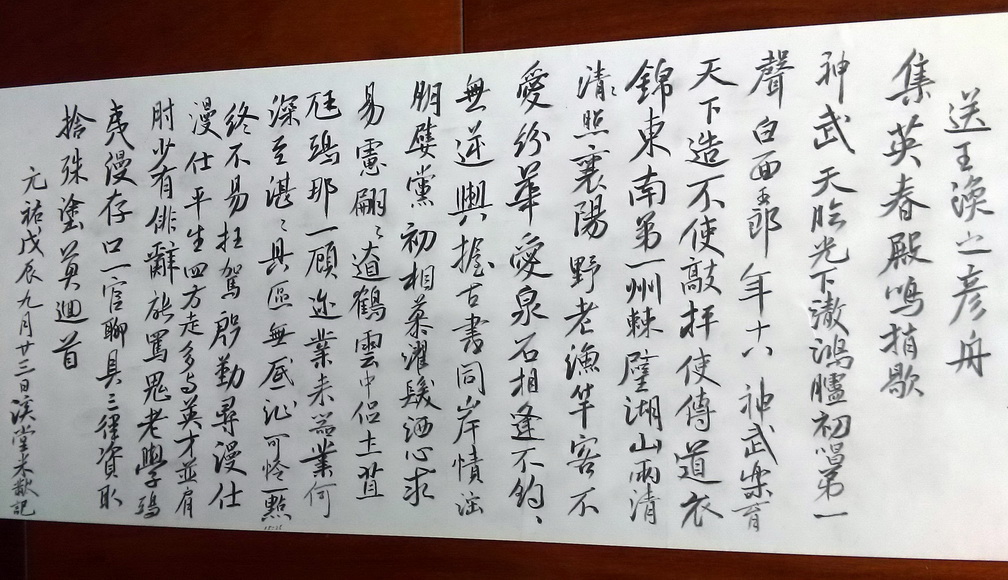 送王涣之彦舟
集英春殿鸣捎歇
神武天臨光下澈鴻臚初唱第一
聲白面玉郎年十八神武樂育
天下造不使敲抨使傳道衣
錦東南第一州棘壁湖山兩清
清照襄陽野老漁竿客不
愛紛華愛泉石相逢不約、
無逆輿握古書同岸幘淫
朋嬖黨初相慕濯髮洒心求
易慮翩、遒鶴雲中侣土苴
尫鸱那一顧迩業未器業何
深至湛、具區無底沘可怜一點
终不易枉駕殷勤尋漫仕
漫仕平生四方走多与英才並肩
肘少有俳辭能罵鬼老學鸱
夷漫存口一官聊具三徑資取
捨殊塗莫迴首
元祐戊辰九月廿三日溪堂米黻記